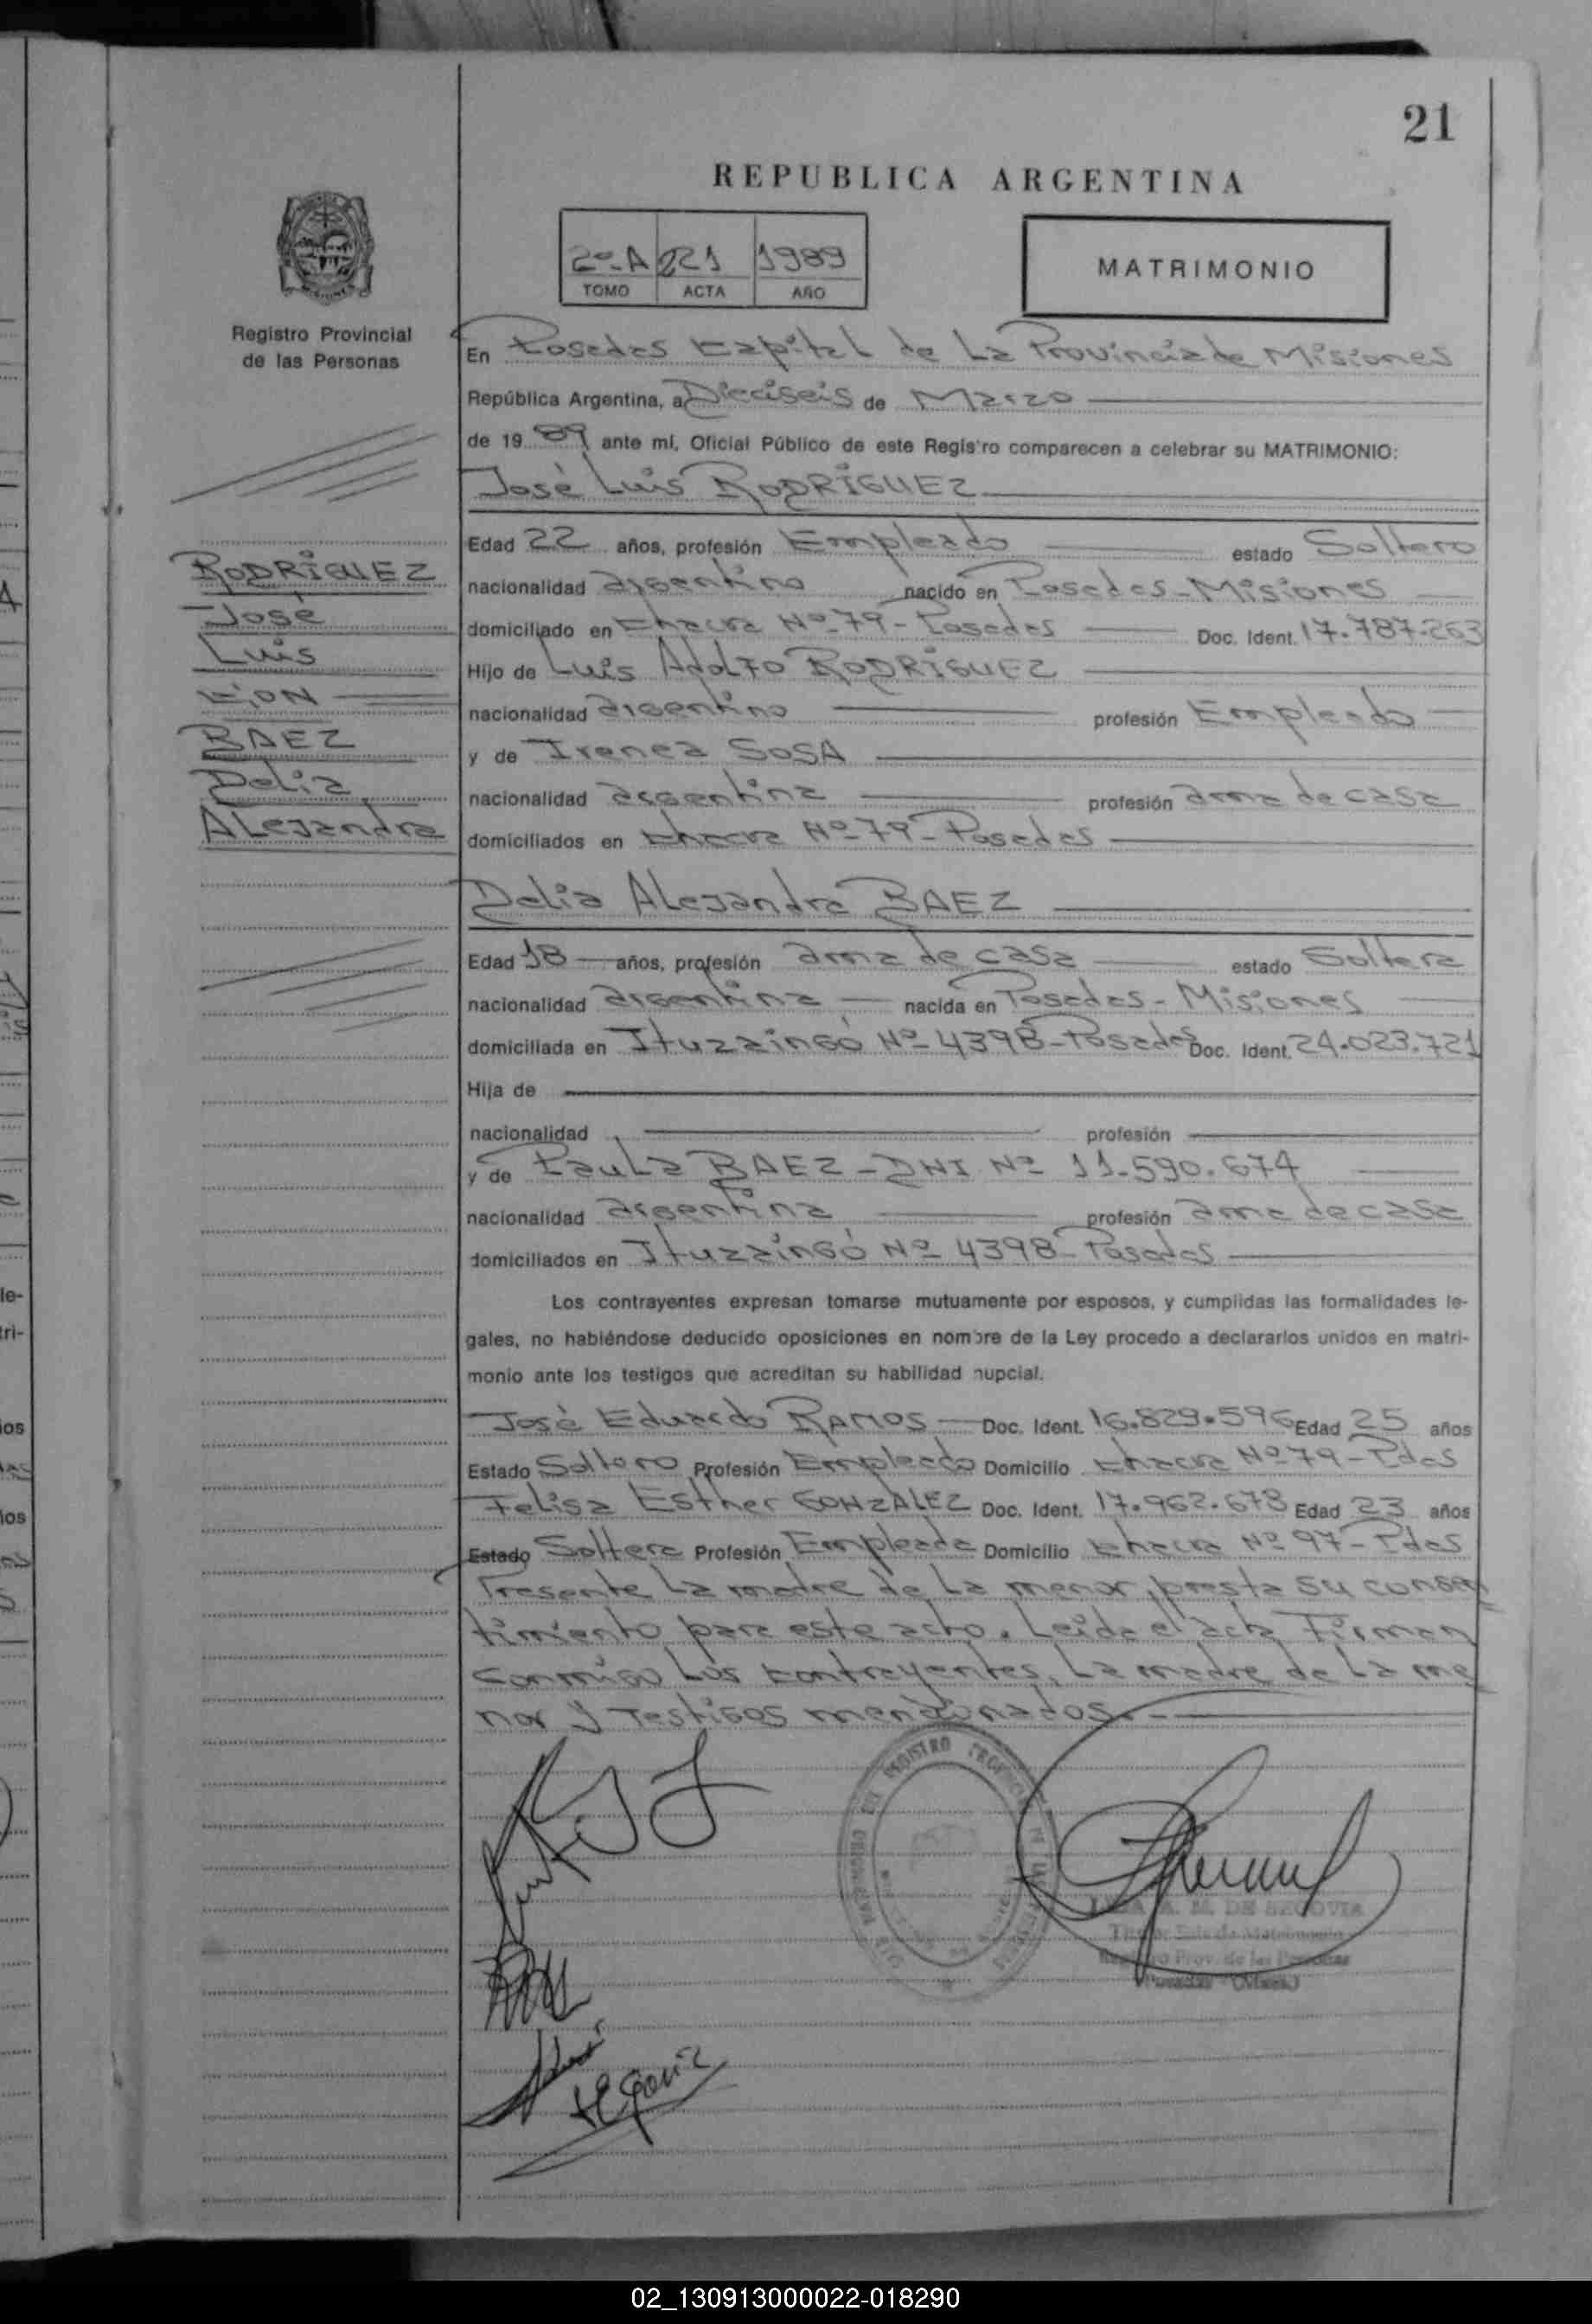 21
REPUBLICA ARGENTINA
2º-A 221 1989
TOMO ACTA AÑO
MATRIMONIO
Registro Provincial
de las Personas
En Posadas Capital de La Provincia de Misiones
República Argentina, a Dieciseis de Marzo
de 19 89 ante mí, Oficial Público de este Registro comparecen a celebrar su MATRIMONIO:
José Luis RODRÍGUEZ
Edad 22 años, profesión Empleado estado Soltero
nacionalidad argentino nacido en Posadas-Misiones
domiciliado en Chacra Nº 79-Posadas Doc. Ident. 17.787.263
Hijo de Luis Adolfo RODRÍGUEZ
nacionalidad argentino profesión Empleado
y de Irenea SOSA
nacionalidad argentina profesión ama de casa
domiciliados en Chacra Nº 79-Posadas
RODRÍGUEZ
José
Luis
CON
BAEZ
Delia
Alejandra
Delia Alejandra BAEZ
Edad 18 años, profesión ama de casa estado Soltera
nacionalidad argentina nacida en Posadas-Misiones
domiciliada en Ituzaingó Nº 4398-Posadas Doc. Ident. 24.023.721
Hija de
nacionalidad profesión
y de Paula BAEZ-DNI Nº 11.590.674
nacionalidad argentina profesión ama de casa
domiciliados en Ituzaingó Nº 4398-Posadas
Los contrayentes expresan tomarse mutuamente por esposos, y cumplidas las formalidades le-
gales, no habiéndose deducido oposiciones en nombre de la Ley procedo a declararlos unidos en matri-
monio ante los testigos que acreditan su habilidad nupcial.
José Eduardo RAMOS Doc. Ident. 16.829.596 Edad 25 años
Estado Soltero Profesión Empleado Domicilio Chacra Nº 79-Pdas
Felisa Esther GONZALEZ Doc. Ident. 17.962.678 Edad 23 años
Estado Soltera Profesión Empleada Domicilio Chacra Nº 97-Pdas
Presente La madre de La menor, presta su consen
timiento para este acto. Leída el acta Firman
conmigo Los contrayentes, La madre de La me
nor y Testigos mencionados.-
A. M. DE SEGOVIA
Sala de Matrimonio
Registro Prov. de las Personas
Posadas (Mnes.)
02_130913000022-018290